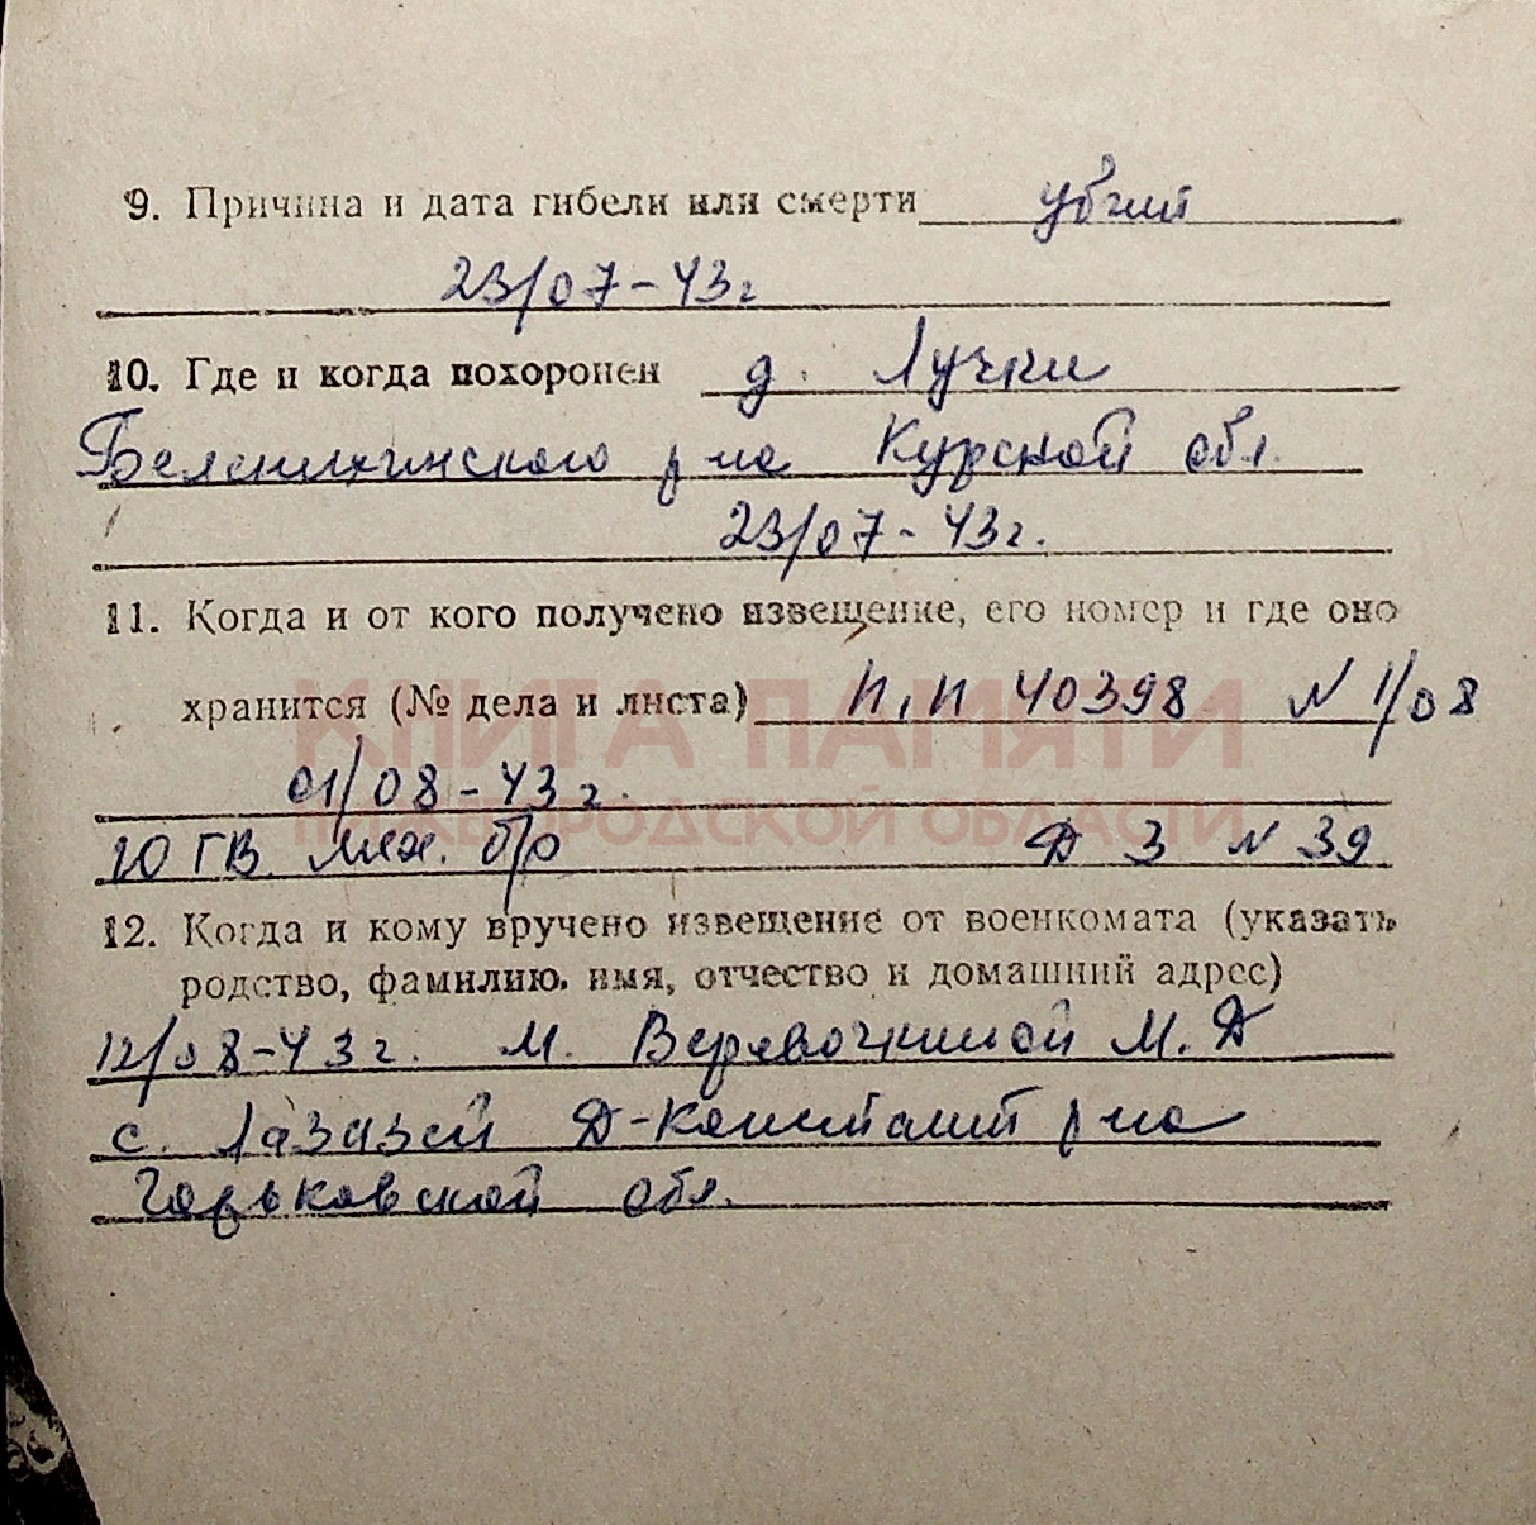 9. Причина и дата гибели или смерти убит
23/07-43г
10. Где и когда похоронен д. Лучки
Беленихинского р-на Курской обл.
23/07-43г.
11. Когда и от кого получено извещение, его номер и где оно
хранится (№ дела и листа) П,П 40398 N 1/08
КНИГА ПАМЯТИ
01/08-43г.
НИЖЕГОРОДСКОЙ ОБЛАСТИ
10 ГВ. мех. бр Д 3 N 39
12. Когда и кому вручено извещение от военкомата (указать
родство, фамилию, имя, отчество и домашний адрес)
12/08-43г. м. Веревочкиной М. Д
с. Лазазей Д-Констант р-на
Горьковской обл.